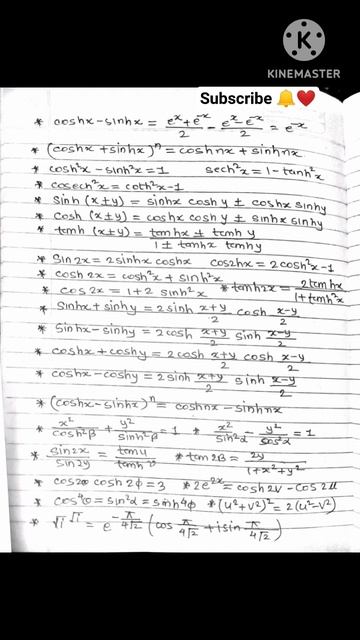 KINEMASTER
Subscribe 🔔❤️
* coshx - sinhx = (e^x + e^-x)/2 - (e^x - e^-x)/2 = e^-x
* (coshx + sinhx)^n = coshnx + sinhnx
* cosh²x - sinh²x = 1 sech²x = 1 - tanh²x
* cosech²x = coth²x - 1
* sinh (x±y) = sinhx coshy ± coshx sinhy
* cosh (x±y) = coshx coshy ± sinhx sinhy
* tanh (x±y) = (tanhx ± tanhy)/(1 ± tanhx tanhy)
* Sin2x = 2sinhx coshx cos2hx = 2cosh²x - 1
* cosh 2x = cosh²x + sinh²x
* cos2x = 1 + 2 sinh²x * tanh2x = (2tanhx)/(1 + tanh²x)
* Sinhx + sinhy = 2sinh (x+y)/2 cosh (x-y)/2
* Sinhx - sinhy = 2cosh (x+y)/2 sinh (x-y)/2
* coshx + coshy = 2cosh (x+y)/2 cosh (x-y)/2
* coshx - coshy = 2sinh (x+y)/2 sinh (x-y)/2
* (coshx - sinhx)^n = coshnx - sinhnx
* x²/cosh²β + y²/sinh²β = 1 * x²/sin²α - y²/cos²α = 1
* sin2x/sin2y = tanu/tanhv * tan2β = 2y/(1+x²+y²)
* cos2θ cosh 2φ = 3 * 2e^2x = cosh2v - cos2u
* cos⁴θ = sin²α = sinh⁴φ * (u²+v²)² = 2(u²-v²)
* √i^√i = e^(-π/4√2) (cos π/4√2 + i sin π/4√2)